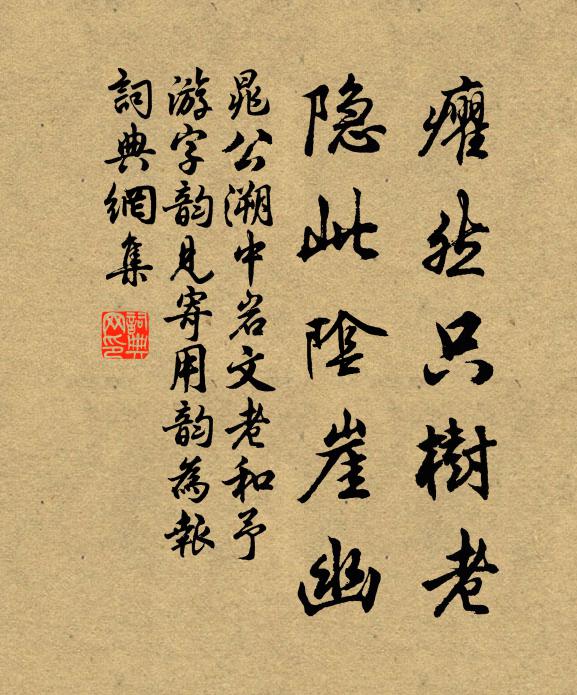 癯然只樹老
隐此陰崖幽
晁公溯中岩文老和予
游字韵見寄用韵為報
詞典網集
詞典网印